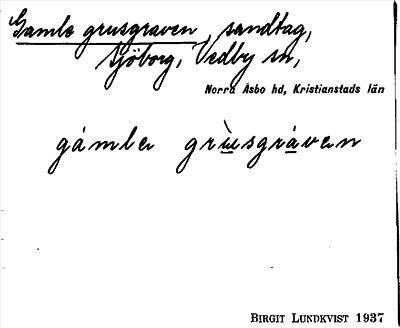 Gamle grusgraven, sandtag,
Sjöborg, Vedby sn,
Norra Åsbo hd, Kristianstads län
gámla grùu̲sgrá̲ven
BIRGIT LUNDKVIST 1937